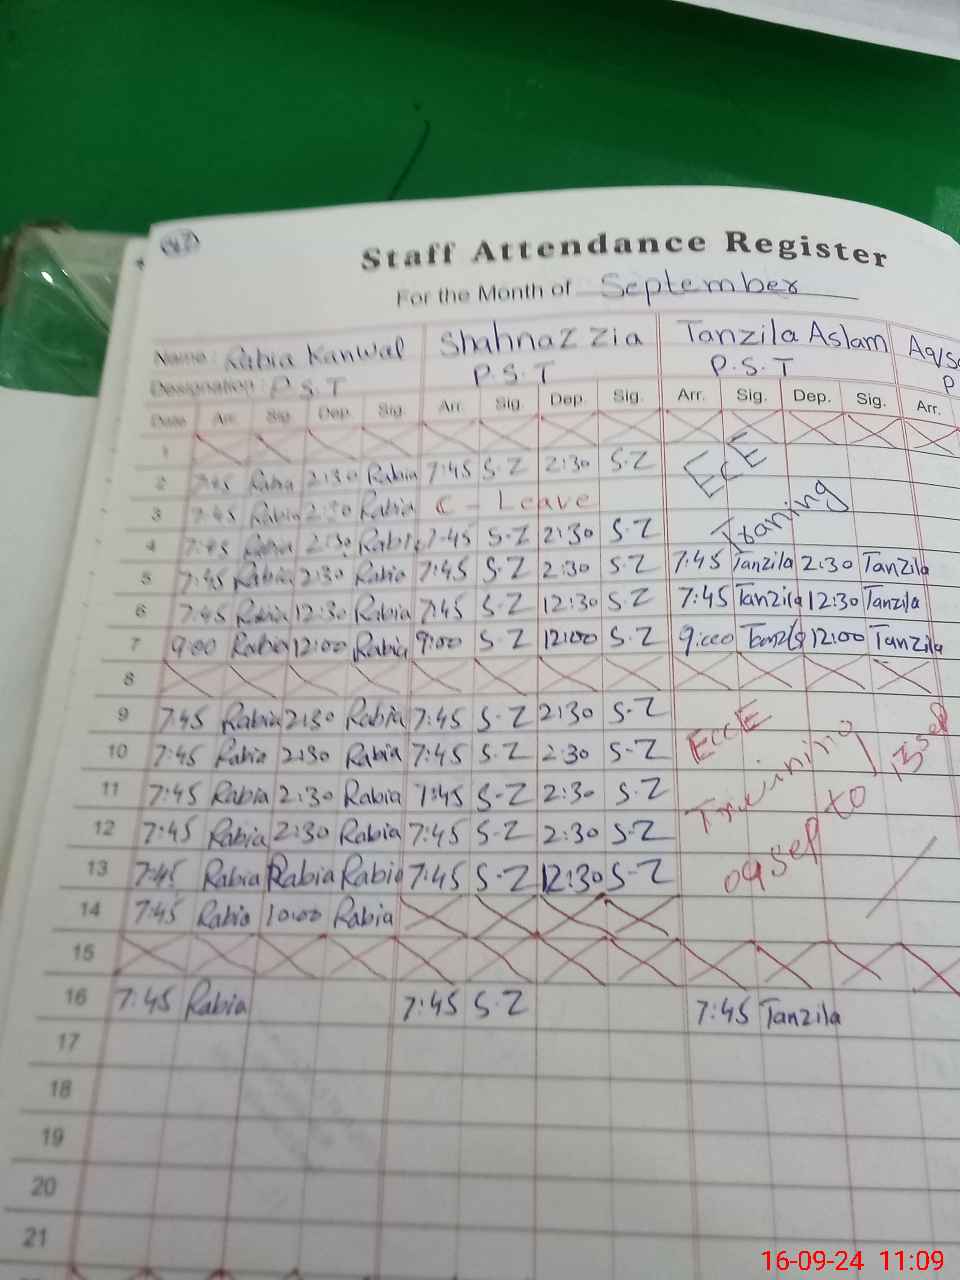 Staff Attendance Register
For the Month of September
Name: Rabia Kanwal Shahnaz Zia Tanzila Aslam
Designation: P.S.T P.S.T P.S.T P
Date Arr. Sig. Dep. Sig. Arr. Sig. Dep. Sig. Arr. Sig. Dep. Sig. Arr.
1
2 7:45 Rabia 2:30 Rabia 7:45 S.Z 2:30 S.Z ECE
3 7:45 Rabia 2:30 Rabia C - Leave
4 7:45 Rabia 2:30 Rabia 7:45 S.Z 2:30 S.Z Traning
5 7:45 Rabia 2:30 Rabia 7:45 S.Z 2:30 S.Z 7:45 Tanzila 2:30 Tanzila
6 7:45 Rabia 12:30 Rabia 7:45 S.Z 12:30 S.Z 7:45 Tanzila 12:30 Tanzila
7 9:00 Rabia 12:00 Rabia 9:00 S.Z 12:00 S.Z 9:00 Tanzila 12:00 Tanzila
8
9 7:45 Rabia 2:30 Rabia 7:45 S-Z 2:30 S-Z
10 7:45 Rabia 2:30 Rabia 7:45 S-Z 2:30 S-Z ECCE
11 7:45 Rabia 2:30 Rabia 7:45 S-Z 2:30 S-Z Training
12 7:45 Rabia 2:30 Rabia 7:45 S-Z 2:30 S-Z
13 7:45 Rabia Rabia Rabia 7:45 S-Z 12:30 S-Z 09 sep to 13 sep
14 7:45 Rabia 10:00 Rabia
15
16 7:45 Rabia 7:45 S.Z 7:45 Tanzila
17
18
19
20
21
16-09-24 11:09